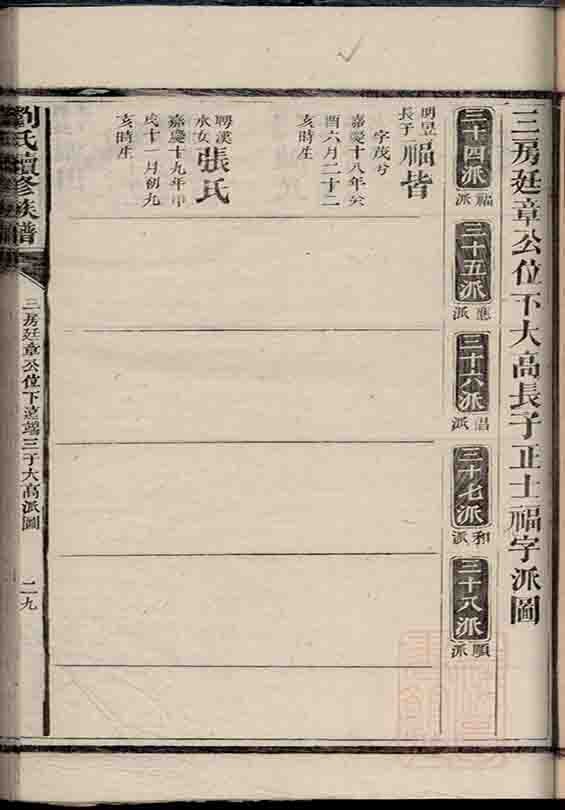 三房廷章公位下大高長子正士福字派圖
三十四派
福派
三十五派
應派
三十六派
昌派
三十七派
和派
三十八派
順派
明昱長子福皆
字茂兮
嘉慶十八年癸
酉六月二十二
亥時生
聘漢水女張氏
嘉慶十九年甲
戌十二月初九
亥時生
劉氏續修族譜
三房廷章公位下達端三子大高派圖
二九